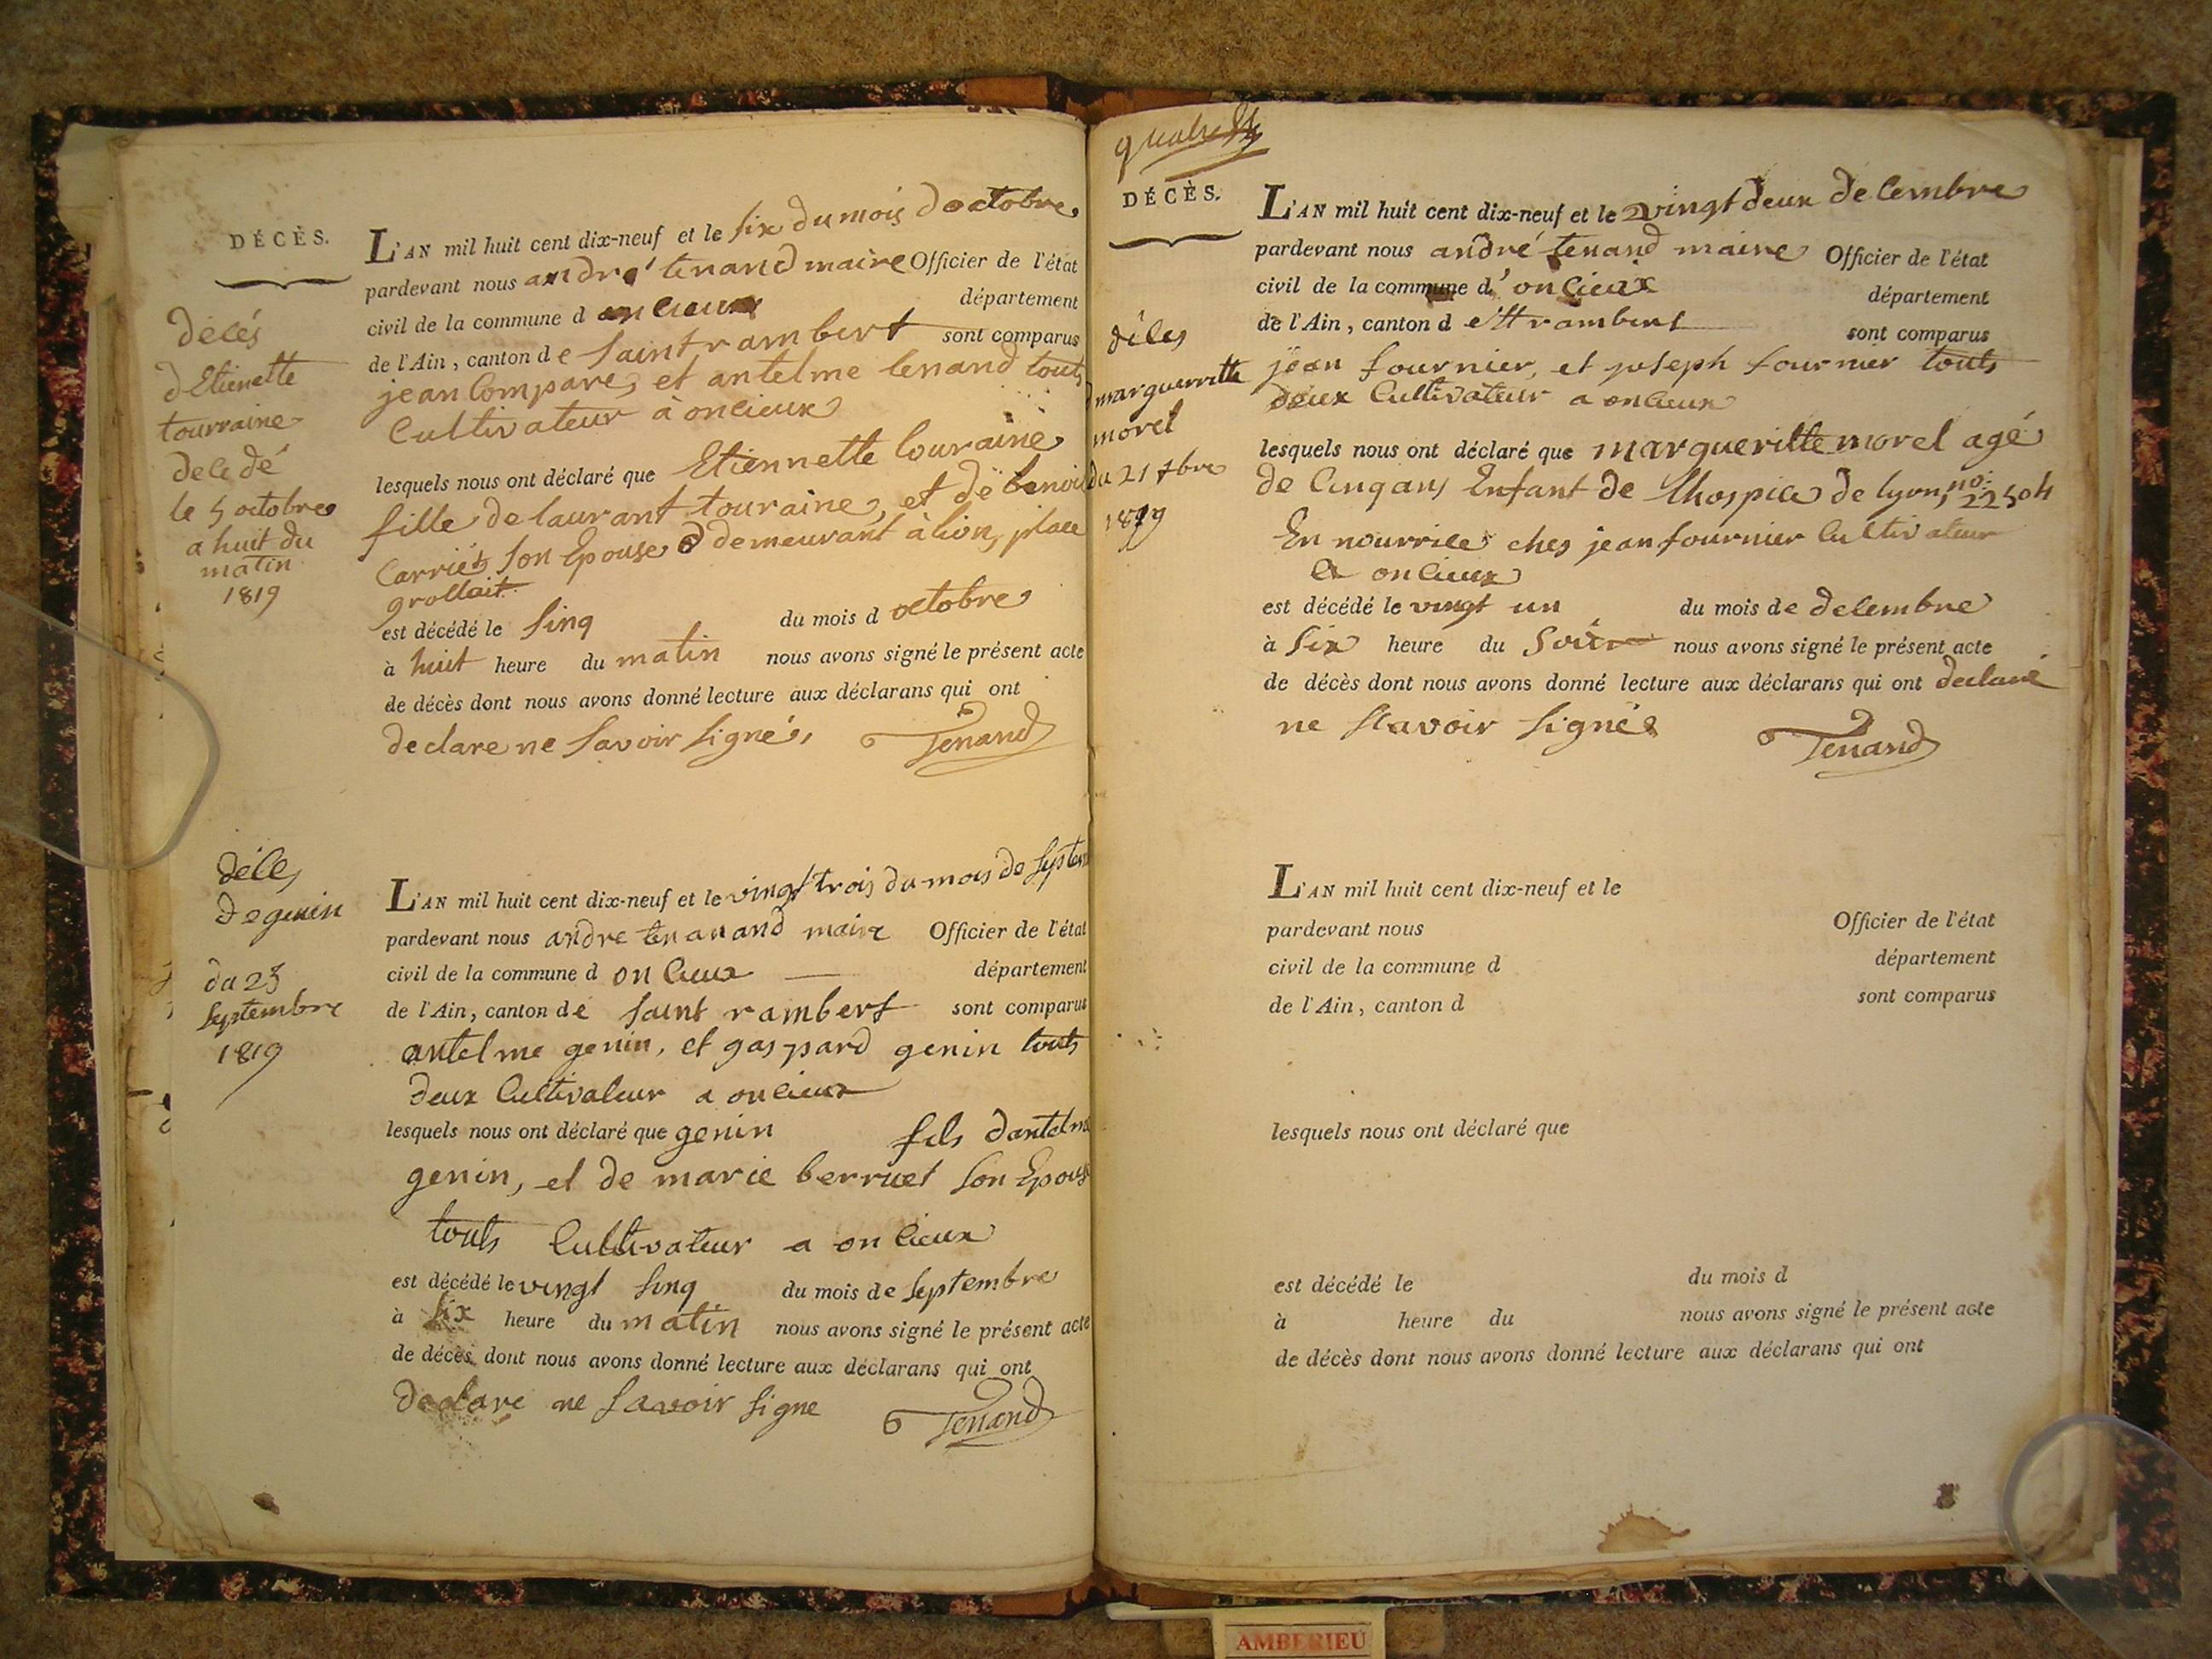 DÉCÈS.
décès
d Etienette
tourraine
decedé
le 5 octobre
a huit du
matin
1819
L'AN mil huit cent dix-neuf et le six du mois doctobre
pardevant nous andré tenand maire Officier de l'état
civil de la commune d oncieux département
de l'Ain, canton de saint rambert sont comparus
jean compare, et antelme tenand touts
cultivateur à oncieux
lesquels nous ont déclaré que Etiennette touraine
fille de laurant touraine, et de benoit
carriés son Epouse demeurant à lion, place
grollait
est décédé le sinq du mois d octobre
à huit heure du matin nous avons signé le présent acte
de décès dont nous avons donné lecture aux déclarans qui ont
declare ne savoir signé, Tenand
déces
de genin
du 25
septembre
1819
L'AN mil huit cent dix-neuf et le vingt trois du mois de septem
pardevant nous andre tenanand maire Officier de l'état
civil de la commune d oncieux département
de l'Ain, canton de saint rambert sont comparus
antelme genin, et gaspard genin touts
deux cultivateur a oncieux
lesquels nous ont déclaré que genin fils dantelme
genin, et de marie berruet son Epouse
touts cultivateur a oncieux
est décédé le vingt sinq du mois de septembre
à six heure du matin nous avons signé le présent acte
de décès dont nous avons donné lecture aux déclarans qui ont
declare ne savoir signe Tenand
DÉCÈS.
déces
d marguerritte
morel
du 21 xbre
1819
L'AN mil huit cent dix-neuf et le vingt deux decembre
pardevant nous andré tenand maire Officier de l'état
civil de la commune d'oncieux département
de l'Ain, canton d e St rambert sont comparus
jean fournier, et joseph fournier touts
deux cultivateur a oncieux
lesquels nous ont déclaré que margueritte morel agé
de cinq ans Enfant de lhospice de lyon, no: 22504
En nourrice ches jean fournier cultivateur
a oncieux
est décédé le vingt un du mois de decembre
à six heure du soir nous avons signé le présent acte
de décès dont nous avons donné lecture aux déclarans qui ont declaré
ne scavoir signés Tenand
L'AN mil huit cent dix-neuf et le
pardevant nous Officier de l'état
civil de la commune d département
de l'Ain, canton d sont comparus
lesquels nous ont déclaré que
est décédé le du mois d
à heure du nous avons signé le présent acte
de décès dont nous avons donné lecture aux déclarans qui ont
AMBERIEU